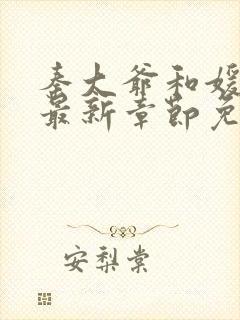 秦大爷和媛
最新章节免
安梨棠